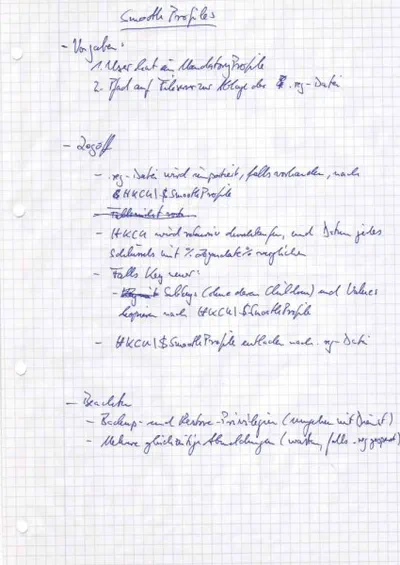 Smooth Profiles
- Vorgaben:
1. User hat ein Mandatory Profile
2. Pfad auf Fileserver zur Ablage der .reg-Datei
- Logoff
- .reg-Datei wird importiert, falls vorhanden, nach
HKCU\$SmoothProfile
- Falls nicht
- HKCU wird rekursiv durchlaufen, und Datum jedes
Schlüssels mit % verglichen
- Falls Key neuer:
- Subkeys (ohne deren Children) und Values
kopieren nach HKCU\$SmoothProfile
- HKCU\$SmoothProfile nach .reg-Datei
- Beachten
- Backup- und Restore-Privilegien (umgehen mit Dienst)
- Mehrere gleichzeitige Abmeldungen (warten, falls .reg gesperrt)